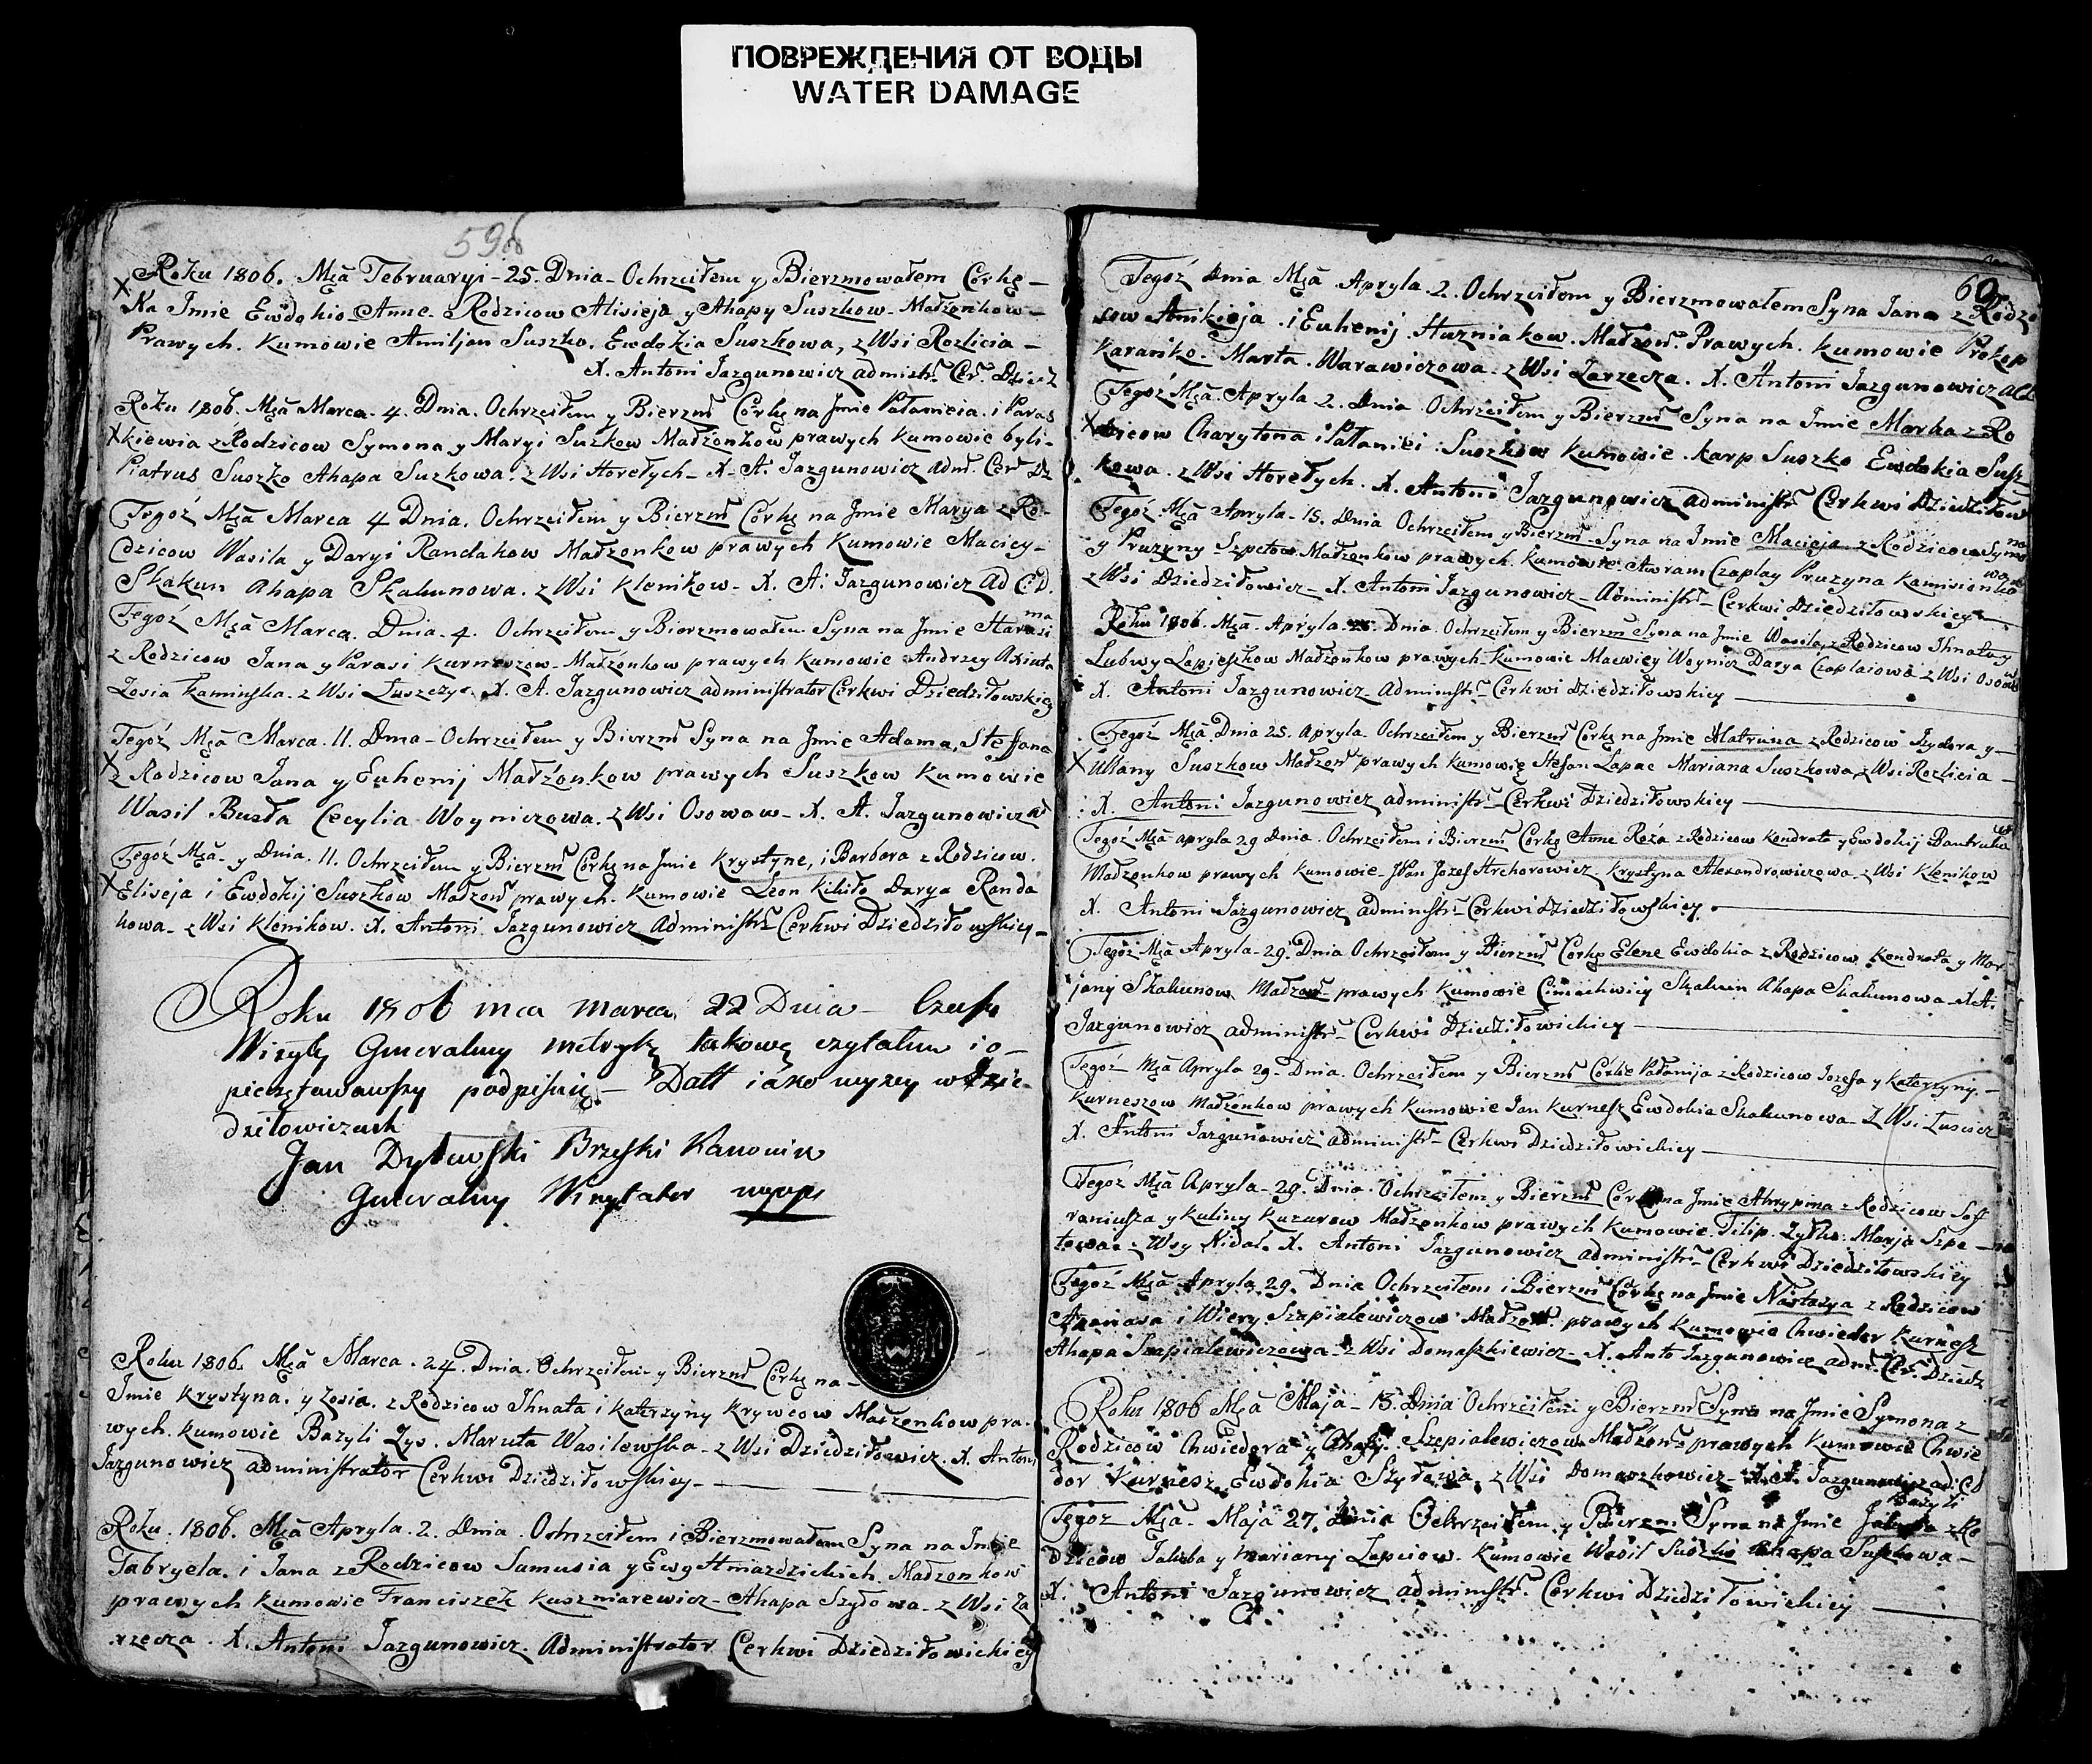 ПОВРЕЖДЕНИЯ ОТ ВОДЫ
WATER DAMAGE
59
Roku 1806. Mçã Februaryi - 25. Dnia - Ochrzciłem y Bierzmowałem Corkę -
X Na Jmie Ewdokio - Anne. Rodzicow Alisieja y Ahapy Suszkow - Małżonkow -
Prawych. Kumowie Amiljan Suszko. Ewdokia Suszkowa, z Wsi Rozlicia -
X. Antoni Jazgunowicz administr. Cer. Dzied
Roku 1806. Mçã Marca. 4. Dnia. Ochrzciłem y Bierzm Corkę na Jmie Pałamieia. i Paras
X kiewia z Rodzicow Symona y Maryi Suzkow Małżonkow prawych Kumowie byli -
Piatrus Suszko Ahapa Suzkowa. z Wsi Horełych - X. A. Jazgunowicz adm. Cer. Dz
Tegoż Mçã Marca 4 Dnia. Ochrzciłem y Bierzm Corkę na Jmie Marya z Ro-
dzicow Wasila y Daryi Randakow Małżonkow prawych Kumowie Maciey -
Skakun Ahapa Skakunowa. z Wsi Klenikow - X. A. Jazgunowicz Ad C. D.
Tegoż Mçã Marca. Dnia. 4. Ochrzciłem y Bierzmowałem Syna na Jmie Harasi
ma
z Rodzicow Jana y Parasi Kurneszow - Małżonkow prawych Kumowie Andrzey Axiuta
Zosia Kaminska. z Wsi Łuszczyc. X. A. Jazgunowicz administrator Cerkwi Dziedziłowskiey
Tegoż Mçã Marca. 11. Dnia - Ochrzciłem y Bierzm Syna na Jmie Adama, Steffana
X z Rodzicow Jana y Euhenij Małżonkow prawych Suszkow Kumowie
Wasil Busła Cecylia Woyniczowa. z Wsi Osowow - X. A. Jazgunowicz ad
Tegoż Mçã. y Dnia. 11. Ochrzciłem y Bierzm Corkę na Jmie Krystyne, i Barbara z Rodzicow.
X Eliseja i Ewdokij Suszkow Małżon prawych. Kumowie Leon Kikiło Darya Randa
kowa - z Wsi Klenikow. X. Antoni Jazgunowicz Administr Cerkwi Dziedziłowskiey -
Roku 1806 mca marca 22 Dnia - Czasu
Wizyty Generalney metrykę takowę czytałem i o-
pieczętowawszy podpisuię - Datt iako wyżey w Dzie-
dziłowiczach
Jan Dytowski Brzeski Kanonik
Generalny Wizytator mppr
Roku 1806. Mçã Marca. 24. Dnia. Ochrzciłem y Bierzm Corkę na -
Jmie Krystyna. y Zosia. z Rodzicow Jhnata i Katerzyny Krywcow Małżonkow pra-
wych. Kumowie Bazyli Zys. Maruta Wasilewska - z Wsi Dziedziłowicz. X. Antoni
Jazgunowicz administrator Cerkwi Dziedziłowskiey -
Roku. 1806. Mçã Apryla. 2. Dnia. Ochrzciłem i Bierzmowałem Syna na Jmie
Gabryela. i Jana z Rodzicow Samusia y Ewy Hniazdzickich Małżonkow
prawych Kumowie Franciszek Kuszniarewicz - Ahapa Szyłowa - z Wsi Za
rzecza. X. Antoni Jazgunowicz. Administrator Cerkwi Dziedziłowickiey
60
Tegoż Dnia Mçã Apryla. 2. Ochrzciłem y Bierzmowałem Syna Jana z Rodzi
cow Anikieja. i Euhenij. Huzniakow. Małżon. Prawych. Kumowie Prokop
Karańko. Marta. Warawiczowa. z Wsi Zarzecza. X. Antoni Jazgunowicz
Tegoż Mçã. Apryla 2. Dnia Ochrzciłem y Bierzm Syna na Jmie Marka z Ro
X dzicow Charytona i Pałaniei. Suszkow Kumowie Karp Suszko Ewdokia Susz
kowa. z Wsi Horełych. X. Antoni Jazgunowicz administr Cerkwi Dziedziłow
Tegoż Mçã Apryla - 15. Dnia Ochrzciłem y Bierzm - Syna na Jmie Macieja z Rodzicow Symo
na
y Pruzyny Szpetow Małżonkow prawych. Kumowie Awram Czaplay Pruzyna Kamisionko
wa
z Wsi Dziedziłowicz - X. Antoni Jazgunowicz - Administr - Cerkwi Dziedziłowskiey
Roku 1806. Mçã. Apryla Dnia. Ochrzciłem y Bierzm Syna na Jmie Wasila z Rodzicow Jhnata y
Lubwy Łapieszkow Małżonkow prawych. Kumowie Maewiey Woynicz Darya Czaplaiowa z Wsi Osow
X. Antoni Jazgunowicz - Administr - Cerkwi Dziedziłowskiey
Tegoż Mçã Dnia 25. Apryla. Ochrzciłem y Bierzm Corkę na Jmie Matruna z Rodzicow Jzydora y -
X Ullany Suszkow Małżon prawych Kumowie Stefan Łapac Mariana Suszkowa z Wsi Rozlicia -
X. Antoni Jazgunowicz administr - Cerkwi Dziedziłowskiey
Tegoż Mçã apryla 29 Dnia. Ochrzciłem i Bierzm Corkę Anne Roża z Rodzicow Kondrata y Ewdokij
Małżonkow prawych Kumowie. JPan Jozef Krystyna Alexandrowiczowa z Wsi Klenikow
X. Antoni Jazgunowicz administr - Cerkwi Dziedziłowskiey.
Tegoż Mçã Apryla - 29. Dnia Ochrzciłem y Bierzm Corkę Elene Ewdokia z Rodzicow Kondrata y Mar
jany Skakunow Małżon - prawych Kumowie Skakun Ahapa Skakunowa - X. A.
Jazgunowicz administr - Cerkwi Dziedziłowickiey -
Tegoż Mçã Apryla 29 - Dnia. Ochrzciłem y Bierzm Corkie Pałanija z Rodzicow Jozefa y Katerzyny. -
Kurneszow Małżonkow prawych Kumowie Jan Kurnesz Ewdokia Skakunowa - Z Wsi Łuscicz
X. Antoni Jazgunowicz administr - Cerkwi Dziedziłowickiey
Tegoż Mçã Apryla - 29. Dnia. Ochrzciłem y Bierzm Corkę na Jmie Ahrypina z Rodzicow Soff
roniusza y Kuliny Kuzurow Małżonkow prawych Kumowie. Filip. Zyłko. Marja Szpe -
towa. z Wsy Nidal. X. Antoni Jazgunowicz administr - Cerkwi Dziedziłowskiey
Tegoż Mçã Apryla. 29. Dnia Ochrzciłem i Bierzm Corkę na Jmie Nastazya z Rodzicow
Atanasa i Wiery Szapialewiczow Małżon prawych Kumowie Chwieder Kurnesz
Ahapa Szapialewiczowa - z Wsi Domaszkiewicz - X. Anto Jazgunowicz adm. Cer. Dziedz
Roku 1806 Mçã Maja - 13. Dnia Ochrzciłem y Bierzm Syna na Jmie Symona z
Rodzicow Chwiedora y Ahafij. Szepialewiczow Małżon prawych Kumowie Chwie
dor Kurnesz Ewdokia Szyłowa z Wsi Domaszkowicz - X. A. Jazgunowicz
Bazyli
Tegoż Mçã - Maja 27. Dnia Ochrzciłem y Bierzm Syna na Jmie z Ro
dzicow Jakuba y Mariany Łapciow - Kumowie Wasil Suszko Ahapa Suszkowa -
X. Antoni Jazgunowicz administr. Cerkwi Dziedziłowickiey